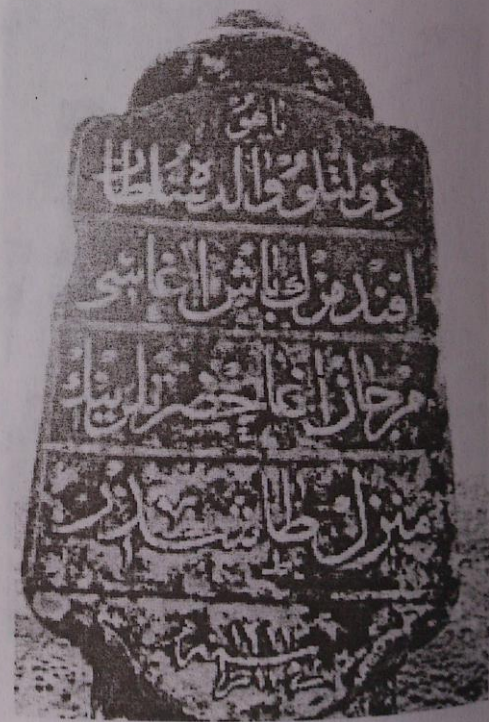 یاهو
دولتلو والده سلطان
افندمزك باش اغاسی
مرجان اغا حضرتلرینك
منزل طاشیدر
سنه